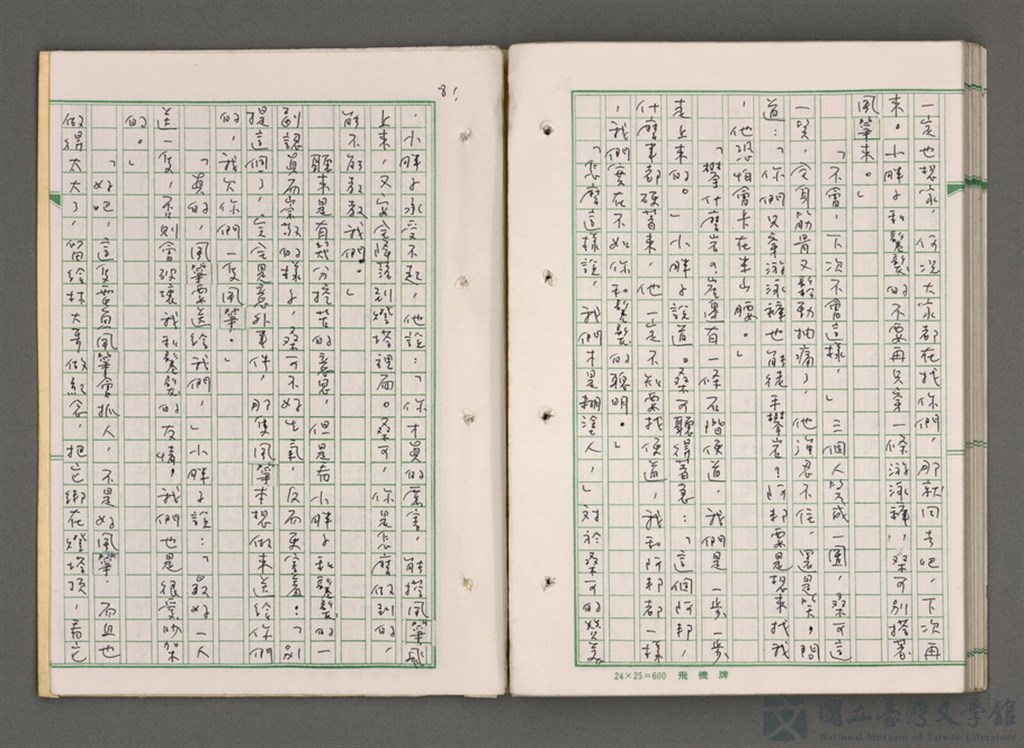 一定也想家,何況大家都在找你們,那就回去吧,下次再
來。小胖子和髮髮的不要再只穿一條游泳褲,桑可別搭著
風箏來。」
「不會,下次不會這樣。」三個人笑成一團,桑可這
一笑,全身筋骨又牽動抽痛了,他強忍不住,還是笑,問
道:「你們只穿游泳褲也能徒手攀岩?阿邦要是想來找我
,他恐怕會卡在半山腰。」
「攀什麼岩?崖裏有一條石階便道,我們是一步一步
走上來的。」小胖子說道。桑可聽得著急:「這個阿邦,
什麼事都硬著來,他一定不知要找便道,我和阿邦都一樣
,我們實在不如你和髮髮的聰明。」
「怎麼這樣說,我們才是糊塗人,」對於桑可的讚美
24×25=600 飛機牌
81
,小胖子承受不起,他說:「你才真的厲害,能搭風箏飛
上來,又安全降落到燈塔裡面。桑可,你是怎麼做到的,
能不能教教我們。」
聽來是有幾分挖苦的意思,但是看小胖子和髮髮的一
副認真而崇敬的樣子,桑可不好生氣,反而更害羞:「別
提這個了,完全是意外事件,那隻風箏本想做來送給你們
的,我欠你們一隻風箏。」
「真的,風箏要送給我們,」小胖子說:「最好一人
送一隻,否則會破壞我和髮髮的友情,我們也是很愛吵架
的。」
「好吧,這隻風箏會抓人,不是好風箏,而且也
做得太大了,留給林大哥做紀念,把它綁在燈塔頂,看它
國立臺灣文學館
National Museum of Taiwan Literature